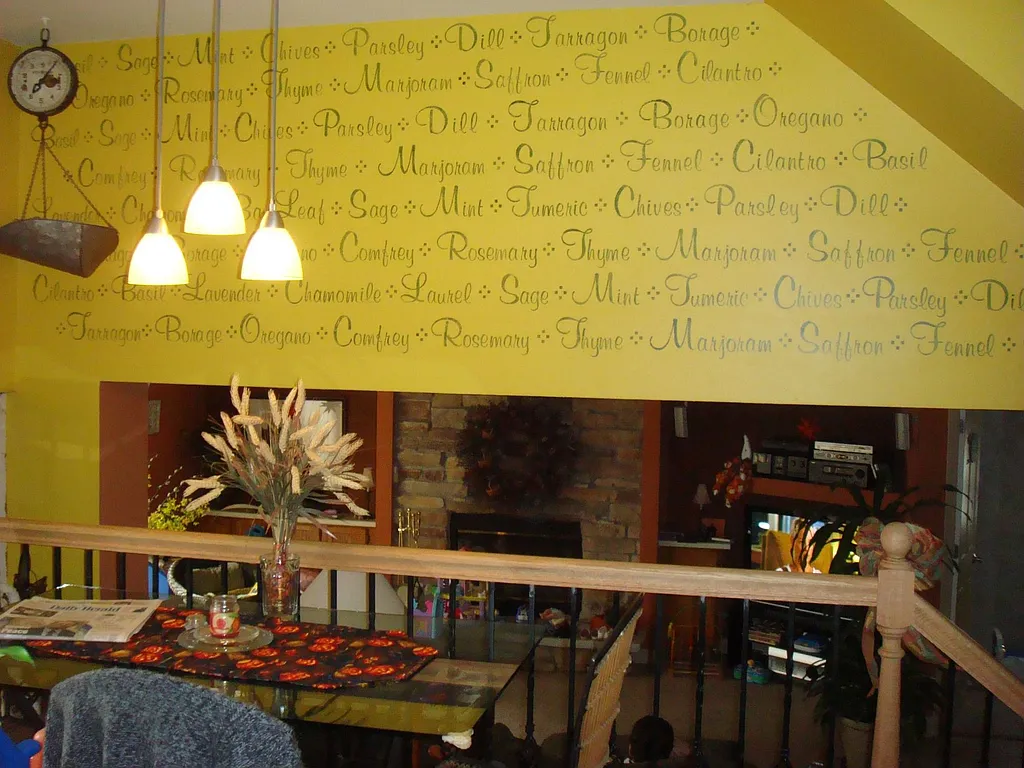 Basil ⁘ Sage ⁘ Mint ⁘ Chives ⁘ Parsley ⁘ Dill ⁘ Tarragon ⁘ Borage ⁘
Oregano ⁘ Rosemary ⁘ Thyme ⁘ Marjoram ⁘ Saffron ⁘ Fennel ⁘ Cilantro ⁘
Basil ⁘ Sage ⁘ Mint ⁘ Chives ⁘ Parsley ⁘ Dill ⁘ Tarragon ⁘ Borage ⁘ Oregano ⁘
⁘ Comfrey ⁘ Rosemary ⁘ Thyme ⁘ Marjoram ⁘ Saffron ⁘ Fennel ⁘ Cilantro ⁘ Basil
Lavender ⁘ Leaf ⁘ Sage ⁘ Mint ⁘ Tumeric ⁘ Chives ⁘ Parsley ⁘ Dill ⁘
Borage ⁘ Comfrey ⁘ Rosemary ⁘ Thyme ⁘ Marjoram ⁘ Saffron ⁘ Fennel ⁘
Cilantro ⁘ Basil ⁘ Lavender ⁘ Chamomile ⁘ Laurel ⁘ Sage ⁘ Mint ⁘ Tumeric ⁘ Chives ⁘ Parsley ⁘ Dil
⁘ Tarragon ⁘ Borage ⁘ Oregano ⁘ Comfrey ⁘ Rosemary ⁘ Thyme ⁘ Marjoram ⁘ Saffron ⁘ Fennel ⁘
Daily Herald